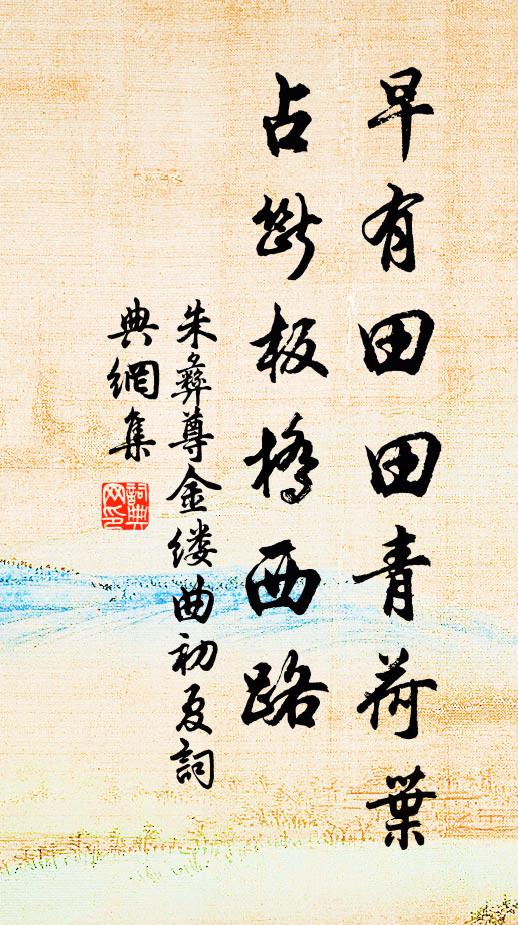 早有田田青荷葉
占斷板橋西路
朱彝尊金缕曲初夏詞
典網集
詞典
网印